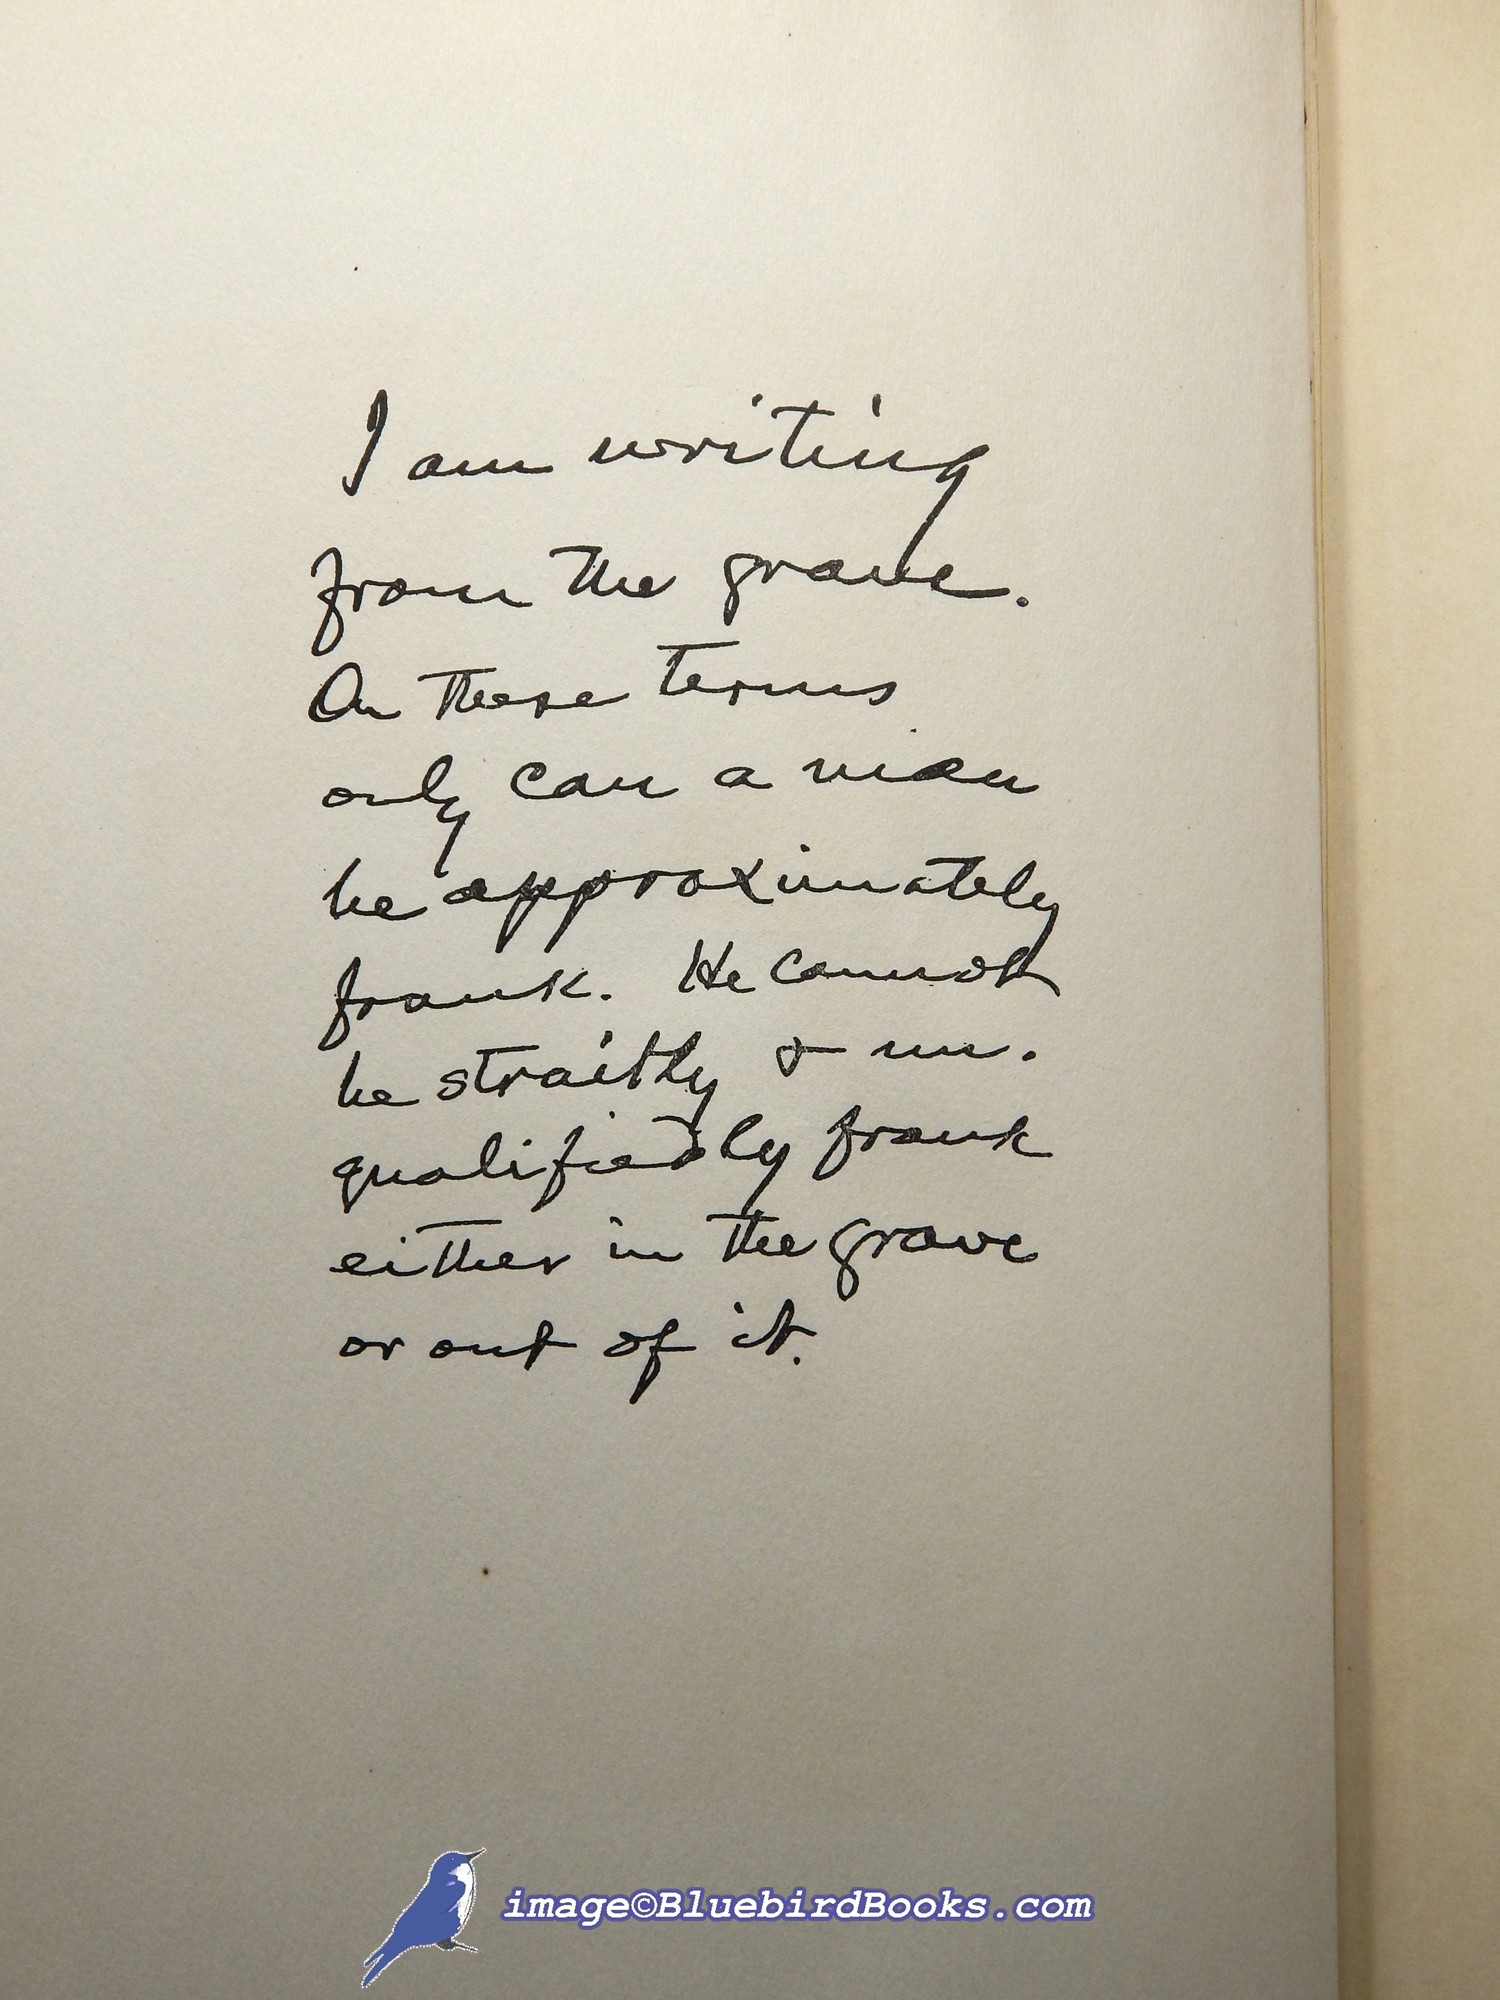 I am writing
from the grave.
On these terms
only can a man
be approximately
frank. He cannot
be straitly & un-
qualifiedly frank
either in the grave
or out of it.
image©BluebirdBooks.com